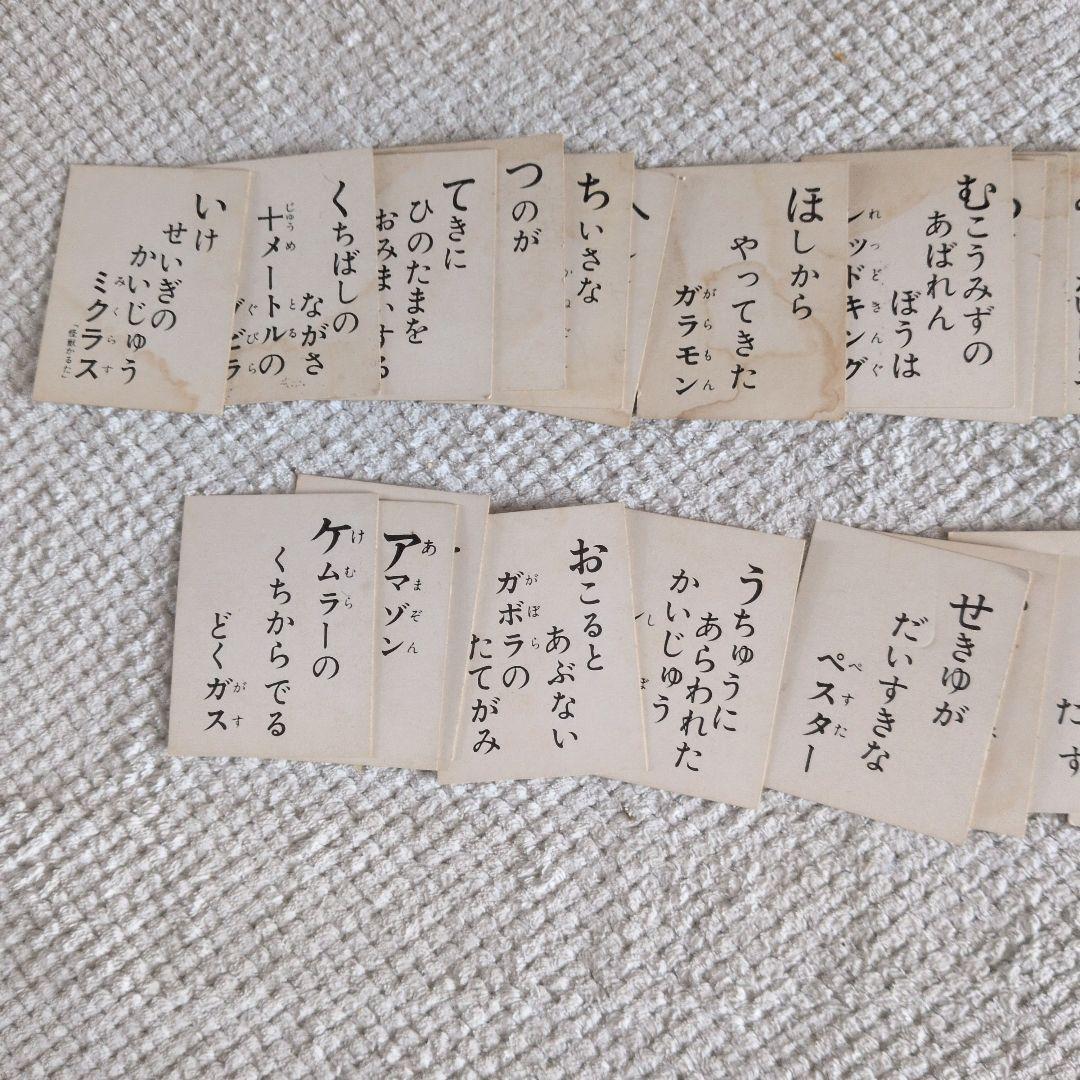 いけ
せいぎの
かいじゅう
ミクラス
みくらす
「怪獣かるた」
くちばしの
ながさ
十メートルの
じゅうめとる
グビラ
ぐびら
てきに
ひのたまを
おみまいする
つのが
ちいさな
ほしから
やってきた
ガラモン
がらもん
むこうみずの
あばれん
ぼうは
レッドキング
れっどきんぐ
ケムラーの
けむら
くちからでる
どくガス
がす
アマゾン
あまぞん
おこると
あぶない
ガボラの
がぼら
たてがみ
うちゅうに
あらわれた
かいじゅう
せきゆが
だいすきな
ペスター
ぺすた